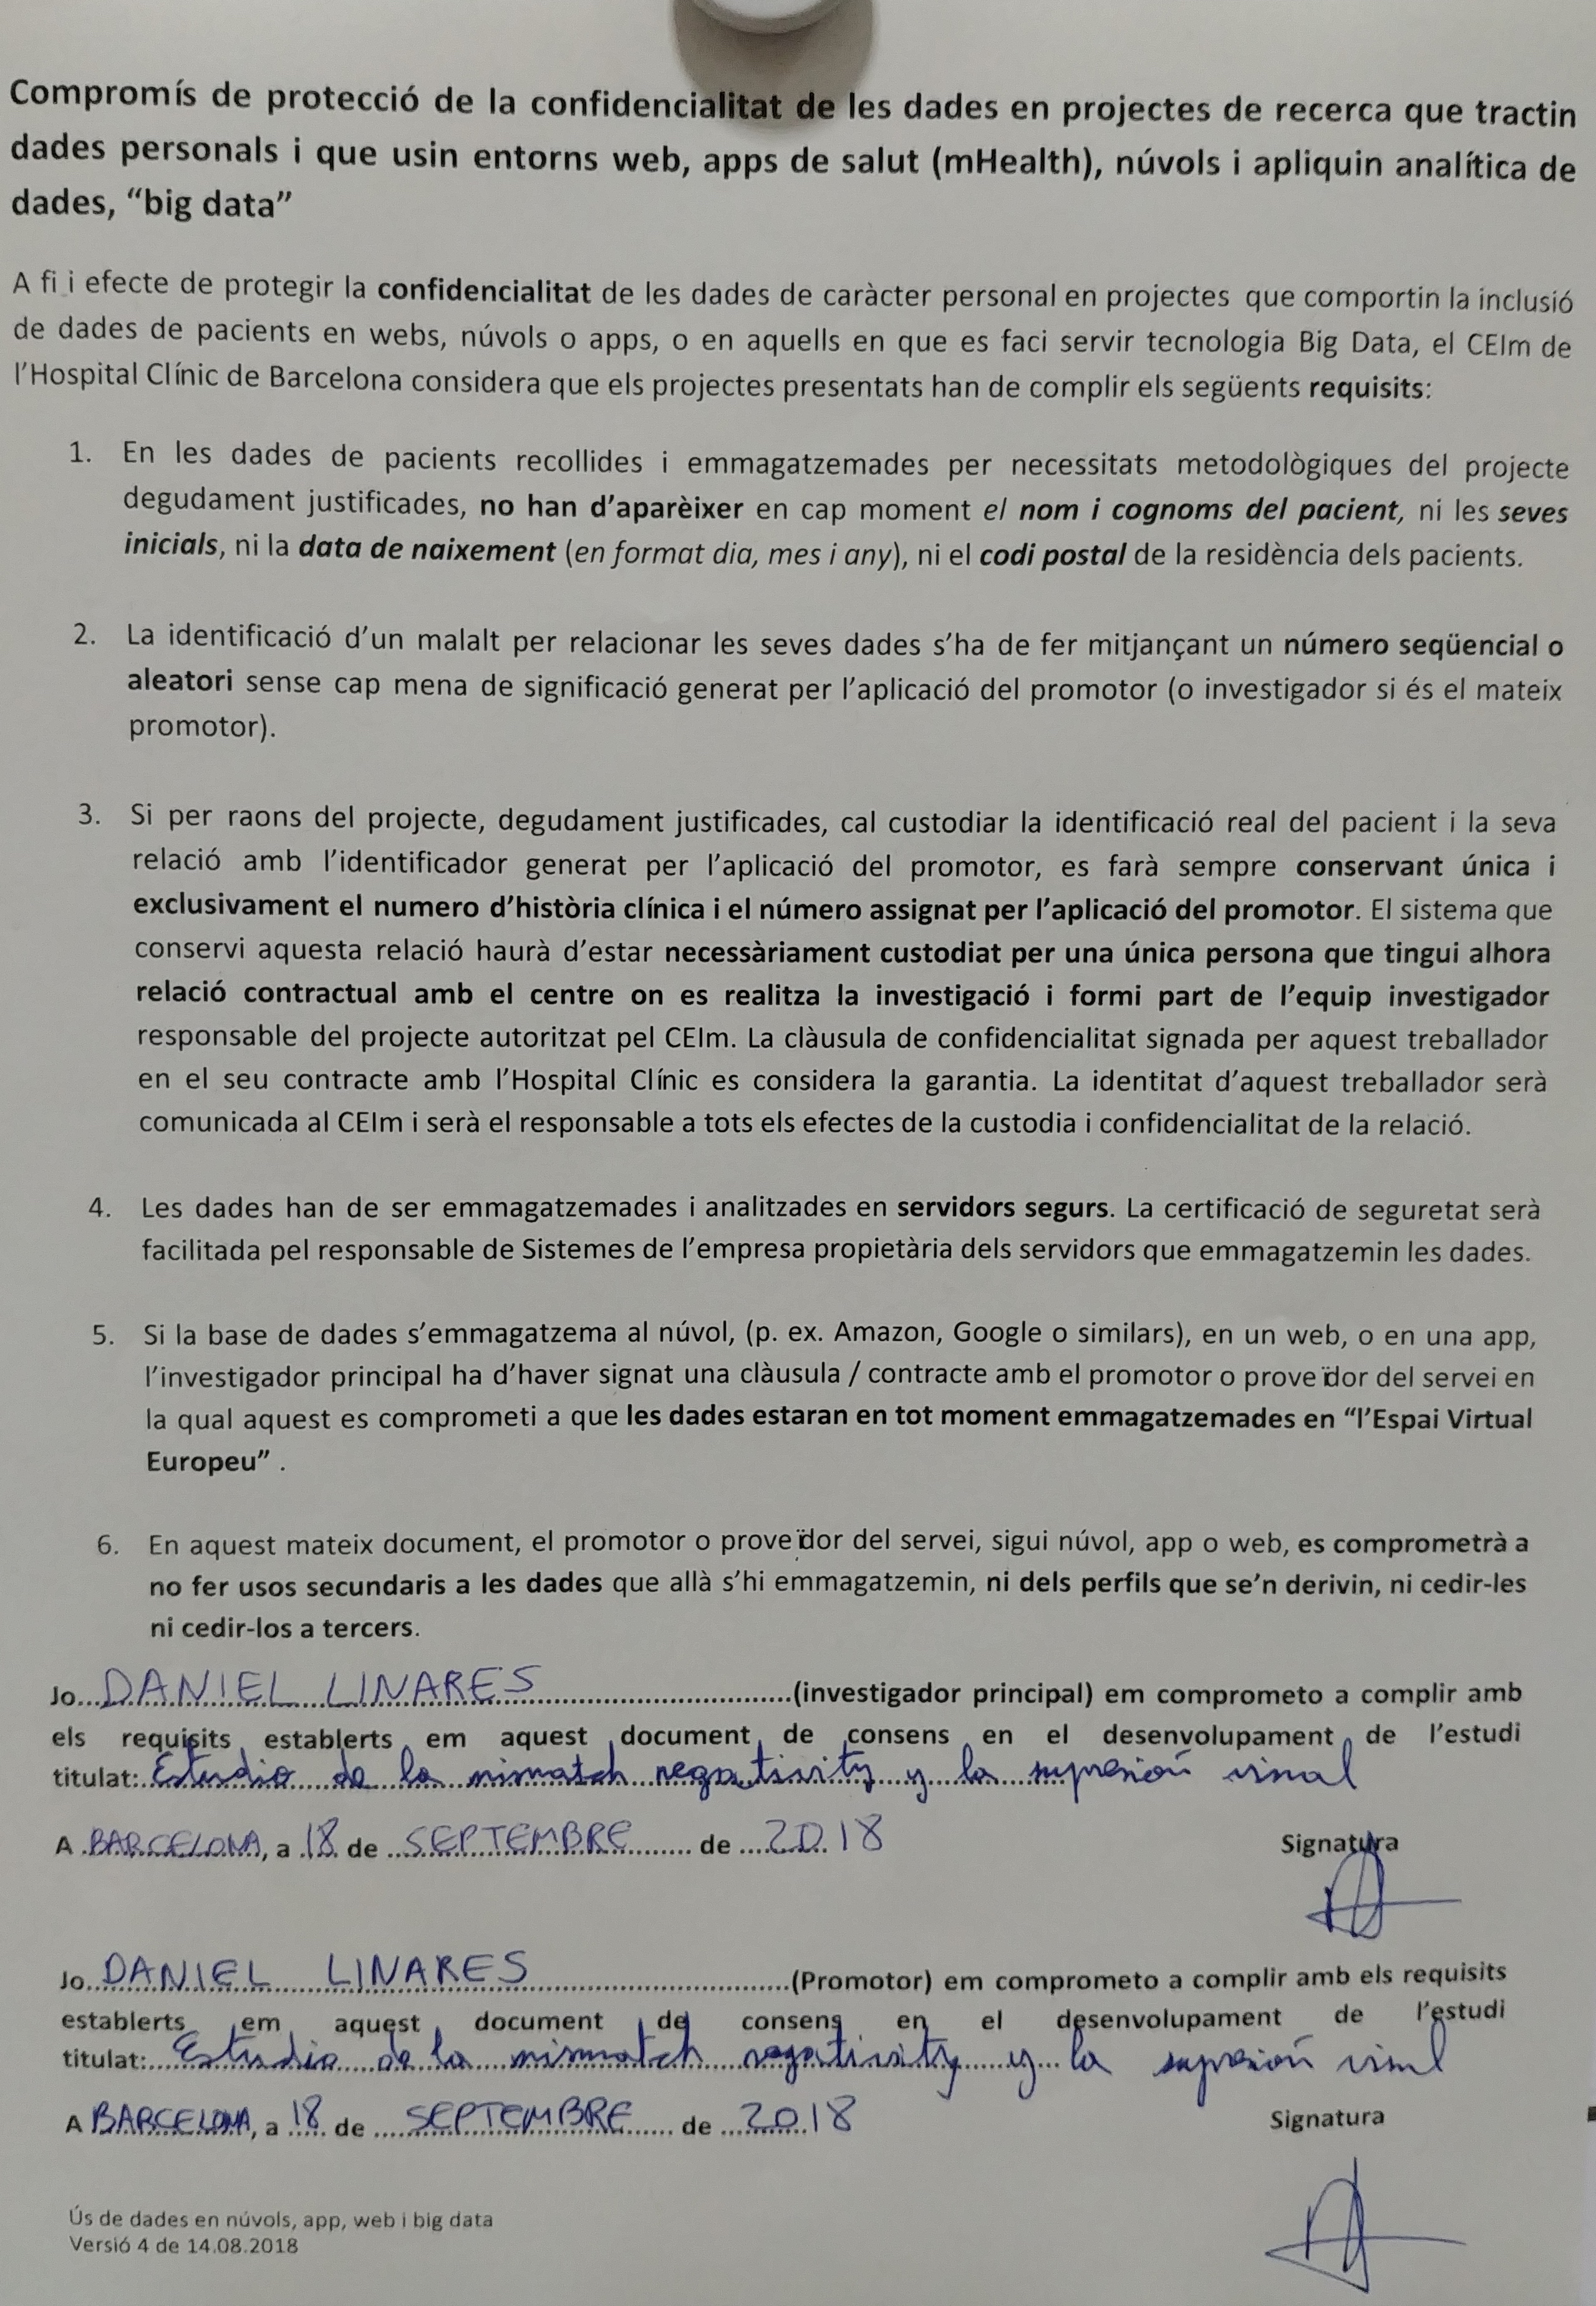 Compromís de protecció de la confidencialitat de les dades en projectes de recerca que tractin
dades personals i que usin entorns web, apps de salut (mHealth), núvols i apliquin analítica de
dades, “big data”
A fi i efecte de protegir la confidencialitat de les dades de caràcter personal en projectes que comportin la inclusió
de dades de pacients en webs, núvols o apps, o en aquells en que es faci servir tecnologia Big Data, el CEIm de
l’Hospital Clínic de Barcelona considera que els projectes presentats han de complir els següents requisits:
1. En les dades de pacients recollides i emmagatzemades per necessitats metodològiques del projecte
degudament justificades, no han d’aparèixer en cap moment el nom i cognoms del pacient, ni les seves
inicials, ni la data de naixement (en format dia, mes i any), ni el codi postal de la residència dels pacients.
2. La identificació d’un malalt per relacionar les seves dades s’ha de fer mitjançant un número seqüencial o
aleatori sense cap mena de significació generat per l’aplicació del promotor (o investigador si és el mateix
promotor).
3. Si per raons del projecte, degudament justificades, cal custodiar la identificació real del pacient i la seva
relació amb l’identificador generat per l’aplicació del promotor, es farà sempre conservant única i
exclusivament el numero d’història clínica i el número assignat per l’aplicació del promotor. El sistema que
conservi aquesta relació haurà d’estar necessàriament custodiat per una única persona que tingui alhora
relació contractual amb el centre on es realitza la investigació i formi part de l’equip investigador
responsable del projecte autoritzat pel CEIm. La clàusula de confidencialitat signada per aquest treballador
en el seu contracte amb l’Hospital Clínic es considera la garantia. La identitat d’aquest treballador serà
comunicada al CEIm i serà el responsable a tots els efectes de la custodia i confidencialitat de la relació.
4. Les dades han de ser emmagatzemades i analitzades en servidors segurs. La certificació de seguretat serà
facilitada pel responsable de Sistemes de l’empresa propietària dels servidors que emmagatzemin les dades.
5. Si la base de dades s’emmagatzema al núvol, (p. ex. Amazon, Google o similars), en un web, o en una app,
l’investigador principal ha d’haver signat una clàusula / contracte amb el promotor o proveïdor del servei en
la qual aquest es comprometi a que les dades estaran en tot moment emmagatzemades en “l’Espai Virtual
Europeu” .
6. En aquest mateix document, el promotor o proveïdor del servei, sigui núvol, app o web, es comprometrà a
no fer usos secundaris a les dades que allà s’hi emmagatzemin, ni dels perfils que se’n derivin, ni cedir-les
ni cedir-los a tercers.
Jo...DANIEL LINARES...(investigador principal) em comprometo a complir amb
els requisits establerts em aquest document de consens en el desenvolupament de l’estudi
titulat: Estudio de la mismatch negativity y la supresión visual
A BARCELONA, a 18 de SEPTEMBRE de 2018
Signatura
Jo...DANIEL LINARES...(Promotor) em comprometo a complir amb els requisits
establerts em aquest document de consens en el desenvolupament de l’estudi
titulat: Estudio de la mismatch negativity y la supresión visual
A BARCELONA, a 18 de SEPTEMBRE de 2018
Signatura
Ús de dades en núvols, app, web i big data
Versió 4 de 14.08.2018